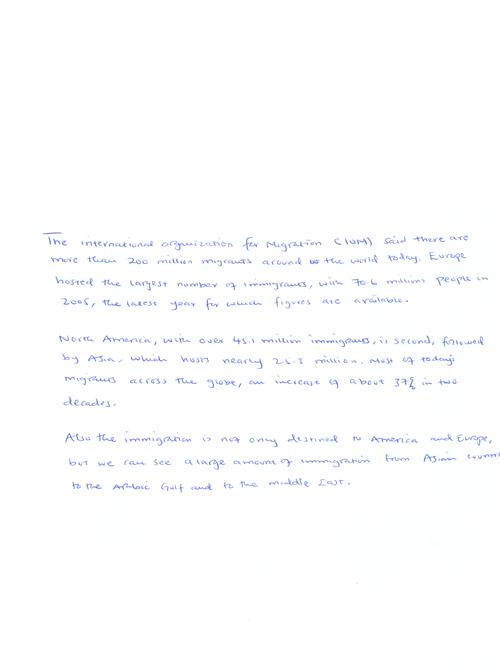 The international organization for Migration (IOM) said there are
more than 200 million migrants around the world today. Europe
hosted the largest number of immigrants, with 70.6 millions people in
2005, the latest year for which figures are available.
North America, with over 45.1 million immigrants, is second, followed
by Asia, which hosts nearly 25.3 million. Most of today's
migrants across the globe, an increase of about 37% in two
decades.
Also the immigration is not only destined to America and Europe,
but we can see a large amount of immigration from Asian countri
to the Arabic Gulf and to the middle East.